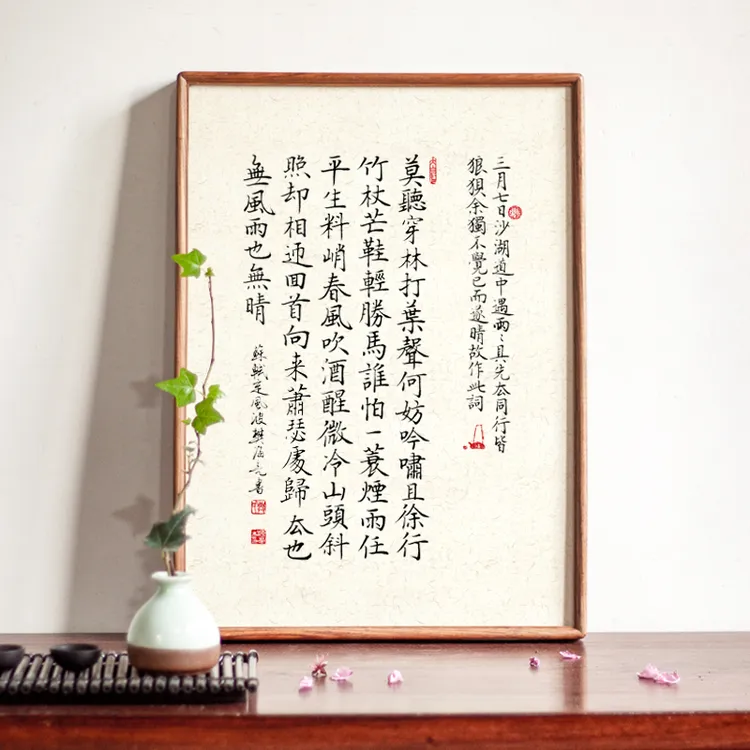 三月七日沙湖道中遇雨〻具先厺同行皆
狼狽余獨不覺已而遂晴故作此詞
莫聽穿林打葉聲何妨吟嘯且徐行
竹杖芒鞋輕勝馬誰怕一蓑煙雨任
平生料峭春風吹酒醒微冷山頭斜
照却相迎回首向来蕭瑟處歸厺也
無風雨也無晴
蘇軾定風波樊書